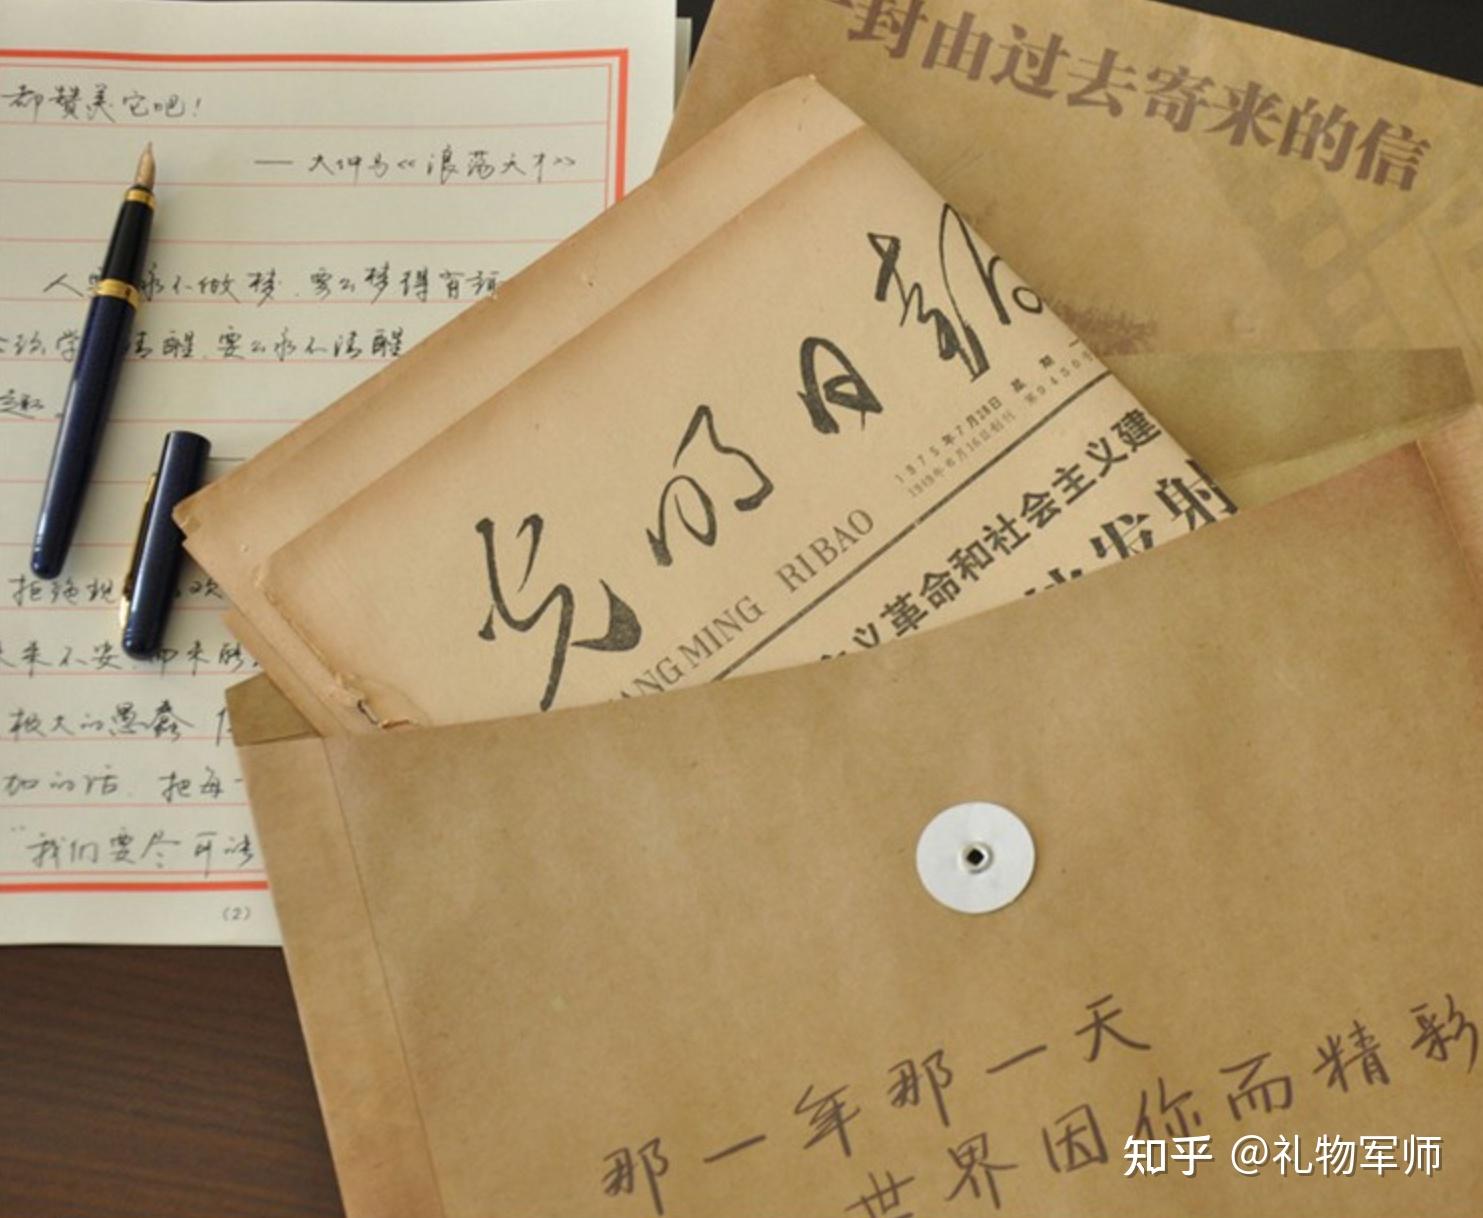 都赞美它吧！
—— 大仲马《浪荡天才》
永不做梦，要么梦得有
清醒，要么永不清醒
趣。
拒绝
来不安 而来
极大的愚蠢
加的话，把每一
“我们要尽可
(2)
一封由过去寄来的信
光明日报
1975年7月28日 星期一
1949年6月16日创刊 第9450号
ANGMING RIBAO
义革命和社会主义建
发射
那一年那一天
世界因你而精彩
知乎 @礼物军师